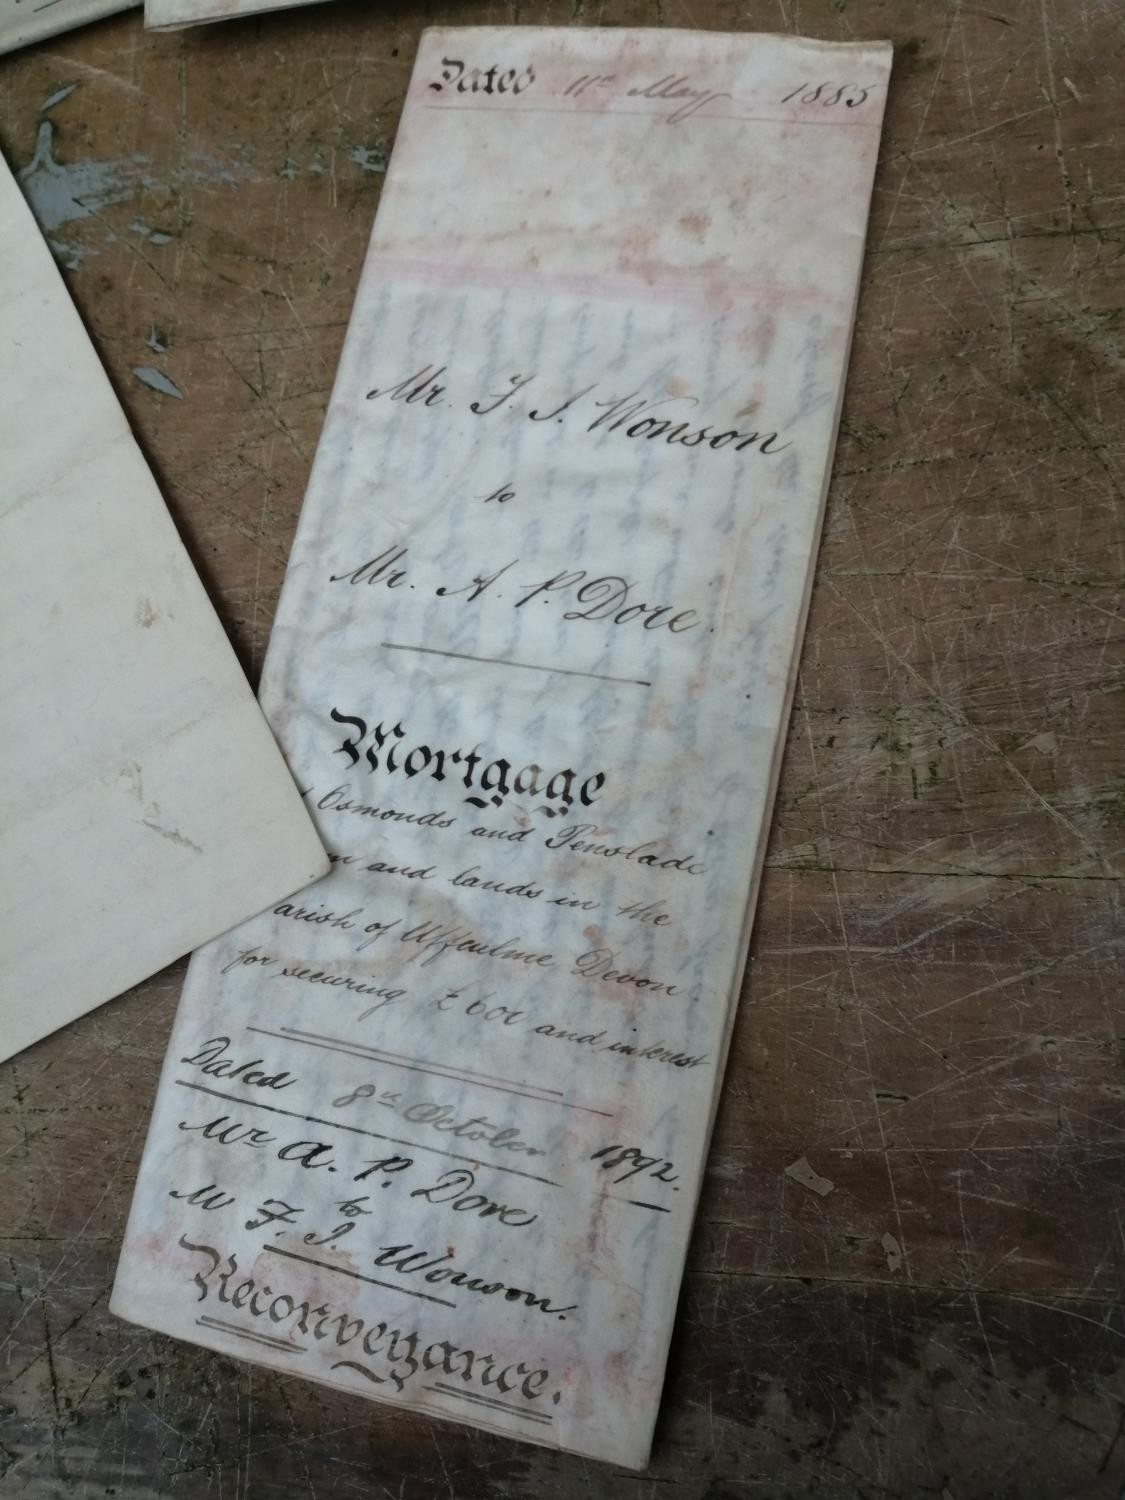 Dated 11th May 1885
Mr. F. I. Wonson
to
Mr. A. P. Dore.
Mortgage
Osmonds and Penslade
and lands in the
arish of Uffculme Devon
for securing £600 and interest
Dated 8th October 1892.
Mr A. P. Dore
to
Mr F. I. Wonson.
Reconveyance.